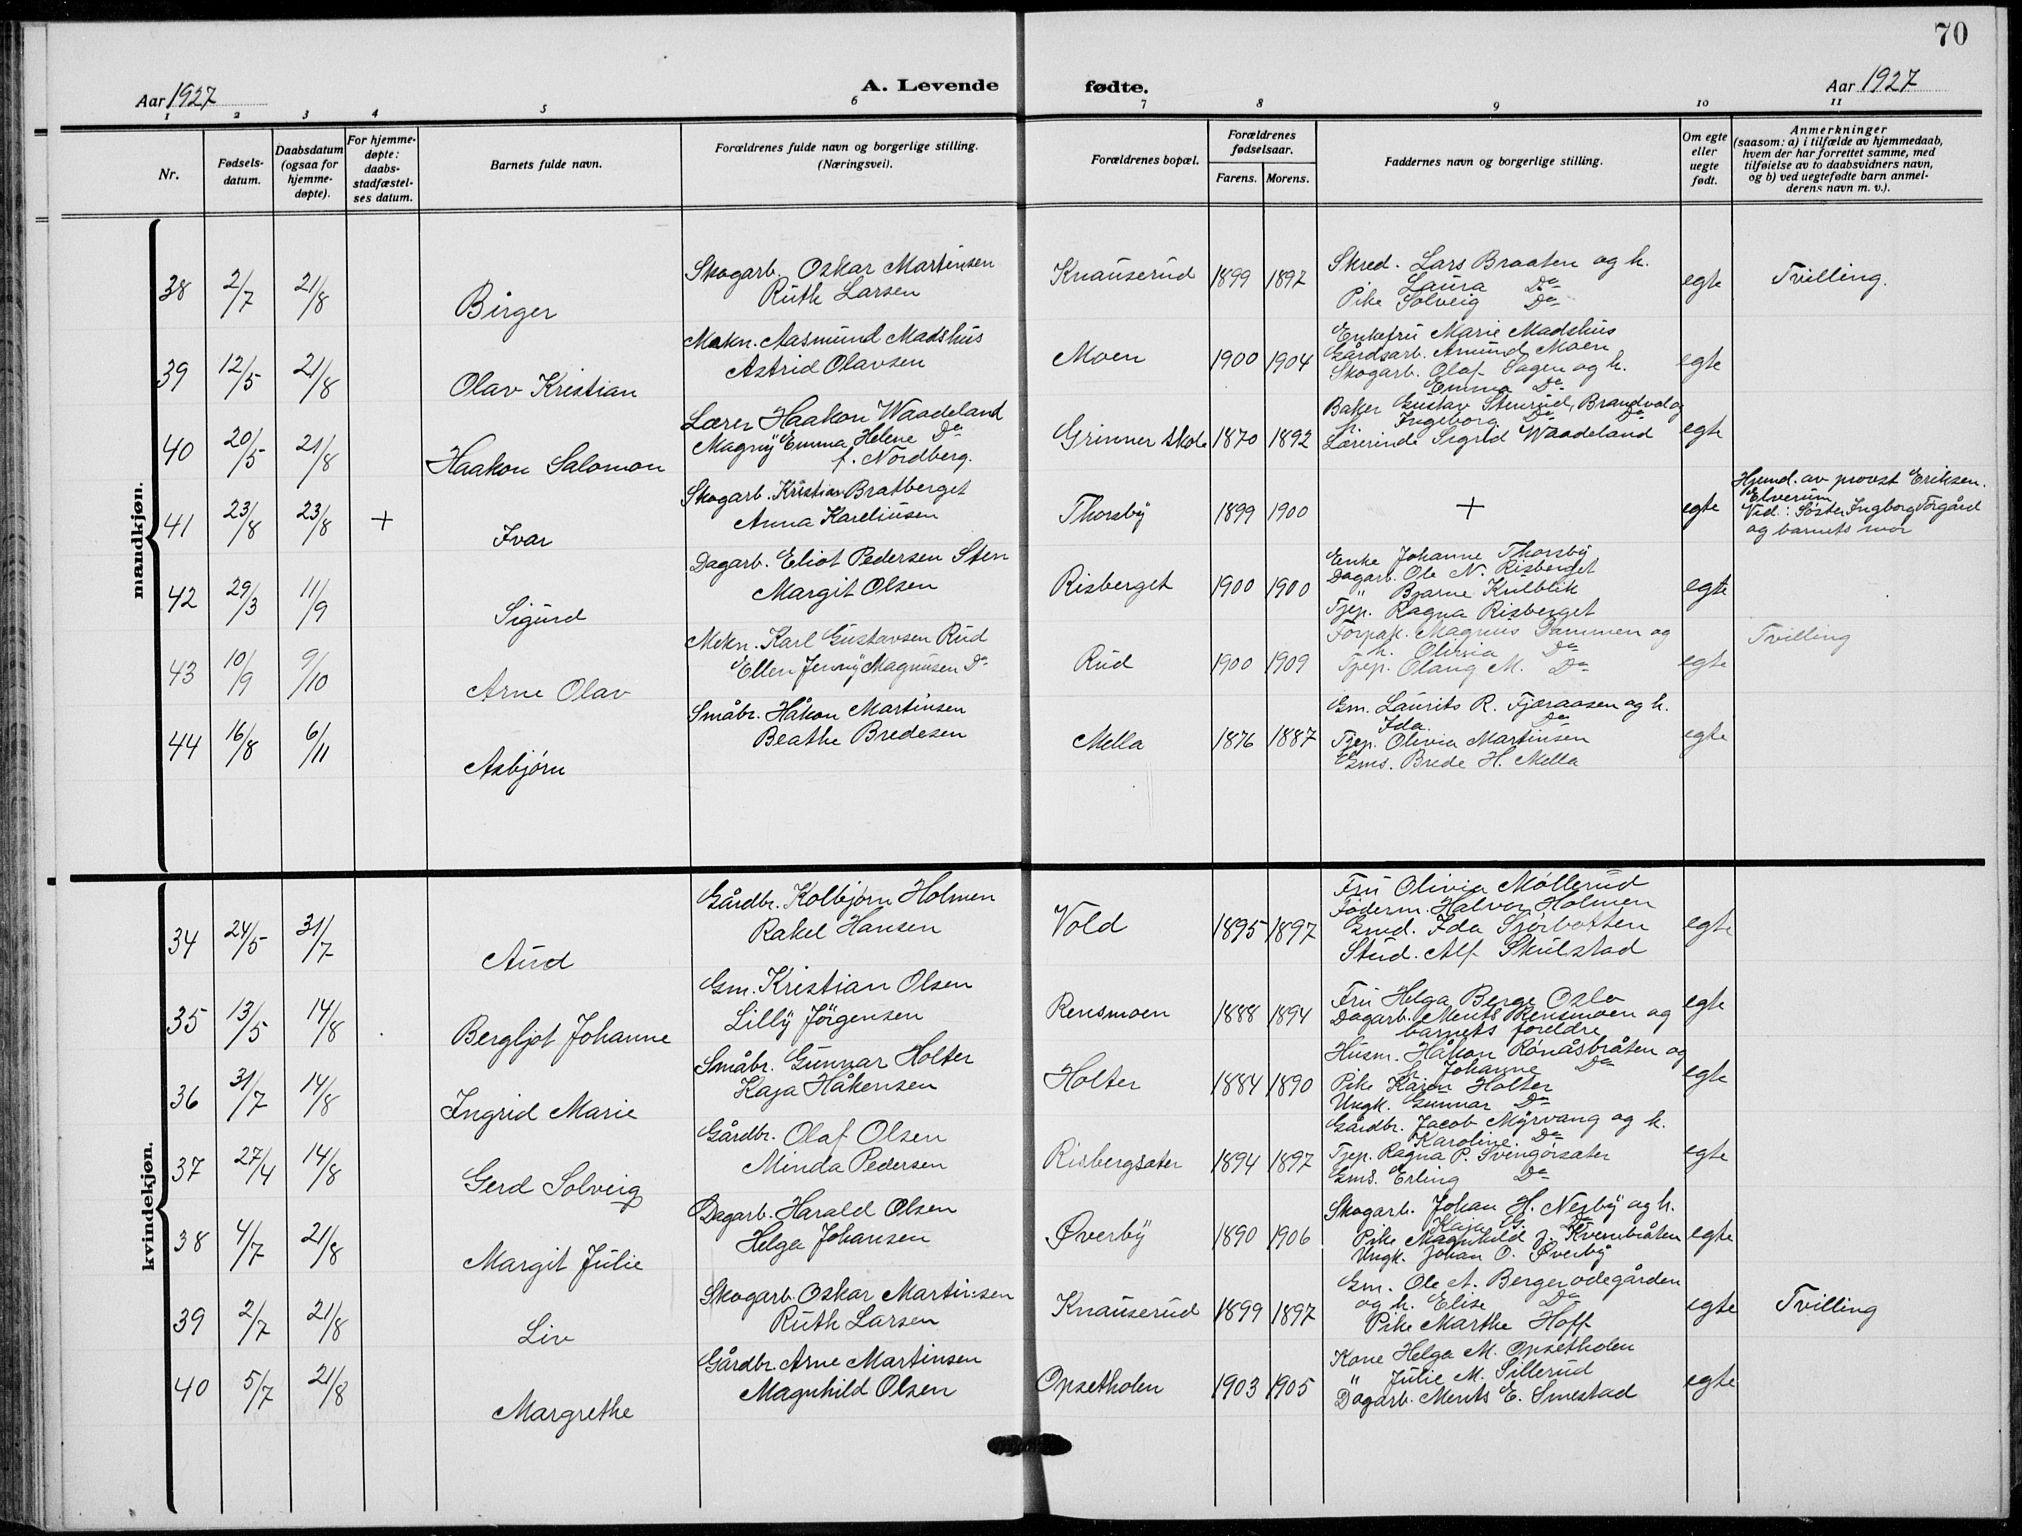 70
Aar 1927
A. Levende fødte.
Aar 1927
1 2 3 4 5 6 7 8 9 10 11
Nr.
Fødsels-
datum.
Daabsdatum
(ogsaa for
hjemme-
døpte).
For hjemme-
døpte:
daabs-
stadfæstel-
ses datum.
Barnets fulde navn.
Forældrenes fulde navn og borgerlige stilling.
(Næringsvei).
Forældrenes bopæl.
Forældrenes
fødselsaar.
Farens. Morens.
Faddernes navn og borgerlige stilling.
Om egte
eller
uegte
født.
Anmerkninger
(saasom: a) i tilfælde av hjemmedaab,
hvem der har forrettet samme, med
tilføielse av to daabsvidners navn,
og b) ved uegtefødte barn anmel-
derens navn m. v.).
mandkjøn.
38 2/7 21/8 Birger
Skogarb. Oskar Martinsen
Ruth Larsen
Knauserud 1899 1897
Skred. Lars Braaten og h.
Laura Do
Pike Solveig Do
egte Tvilling.
39 12/5 21/8 Olav Kristian
Mekn. Aasmund Madshus
Astrid Olavsen
Moen 1900 1904
Enkefru Marie Madshus
Gårdsarb. Amund Moen
Skogarb. Olaf Sagen og h.
Emma Do
egte
40 20/5 21/8 Haakon Salomon
Lærer Haakon Waadeland
Magny Emma Helene Do
f. Nordberg.
Grinner skole 1870 1892
Baker Gustav Stenrud, Brandval og
h. Ingeborg Do Do
Lærerinde Sigrid Waadeland
egte
41 23/8 23/8 + Ivar
Skogarb. Kristian Bratberget
Anna Kareliusen
Thorsby 1899 1900
+
egte
Hjemd. av provst Eriksen.
Elverum
Vid: Søster Ingborg Torgård
og barnets mor
42 29/3 11/9 Sigurd
Dagarb. Eliot Pedersen Sten
Margit Olsen
Risberget 1900 1900
Enke Johanne Thorsby
Dagarb. Ole N. Risberget
" Bjarne Kulblik
Tjep. Ragna Risberget
egte
43 10/9 9/10 Arne Olav
Mekn. Karl Gustavsen Rud
Ellen Jenny Magnusen Do
Rud 1900 1909
Forpak. Magnus Dammen og
h. Olivia Do
Tjep. Olaug M. Do
egte Tvilling
44 16/8 6/11 Asbjørn
Småbr. Håkon Martinsen
Beathe Bredesen
Mella 1876 1887
Gm. Laurits R. Fjæraasen og h.
Ida Do
Tjep. Olivia Martinsen
Gms. Brede H. Mella
egte
kvindekjøn.
34 24/5 31/7 Aud
Gårdbr. Kolbjørn Holmen
Rakel Hansen
Vold 1895 1897
Fru Olivia Møllerud
Føderm. Halvor Holmen
Gmd. Ida Sjøbotten
Stud. Alf Skulstad
egte
35 13/5 14/8 Bergljot Johanne
Gm. Kristian Olsen
Lilly Jörgensen
Rensmoen 1888 1894
Fru Helga Berge Oslo
Dagarb. Ments Rensmoen og
barnets foreldre
egte
36 31/7 14/8 Ingrid Marie
Småbr. Gunnar Holter
Kaja Håkensen
Holter 1884 1890
Husm. Håkon Rønåsbråten og
h. Johanne Do
Pike Karen Holter
Ungk. Gunnar Do
egte
37 27/4 14/8 Gerd Solveig
Gårdbr. Olaf Olsen
Minda Pedersen
Risbergsæter 1894 1897
Gårdbr. Jacob Myrvang og h.
Karoline Do
Tjep. Ragna P. Svengørsæter
Gms. Erling Do
egte
38 4/7 21/8 Margit Julie
Dagarb. Harald Olsen
Helga Johansen
Øverby 1890 1906
Skogarb. Johan H. Nesby og h.
Kaja G. Do
Pike Magnhild J. Kvernbråten
Ungk. Johan O. Øverby
egte
39 2/7 21/8 Liv
Skogarb. Oskar Martinsen
Ruth Larsen
Knauserud 1899 1897
Gm. Ole A. Bergerødegården
og h. Elise Do
Pike Marthe Hoff
egte Tvilling
40 5/7 21/8 Margrethe
Gårdbr. Arne Martinsen
Magnhild Olsen
Opsetholen 1903 1905
Kone Helga M. Opsetholen
" Julie M. Sillerud
Dagarb. Ments E. Smestad
egte